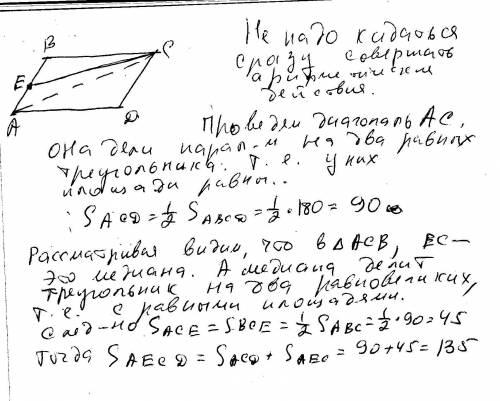 B
C
E
A
D
Не надо кидаться
сразу совершать
арифметические
действия.
Провedём диагональ AC.
Она дели парал-м на два равных
треугольника. Т.е. у них
площади равны..
: S ACD = 1/2 S ABCD = 1/2 · 180 = 90
Рассматривая видим, что в Δ ACB, EC –
это медиана. А медиана делит
треугольник на два равновеликих,
т.е. с равными площадями.
След-но S ACE = S BCE = 1/2 S ABC = 1/2 · 90 = 45
Тогда S AECD = S ACD + S AEC = 90 + 45 = 135